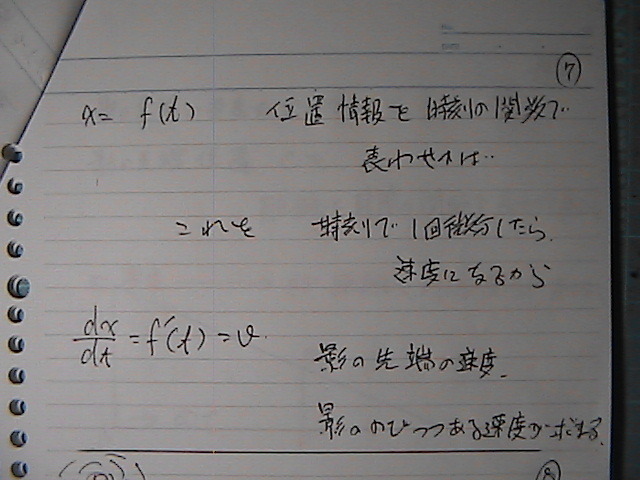 ⑦
x = f(t) 位置情報を時刻の関数で
表わせれば‥
これを 時刻で1回微分したら、
速度になるから
dx/dt = f'(t) = v.
影の先端の速度、
影ののびつつある速度が求まる。
⑧